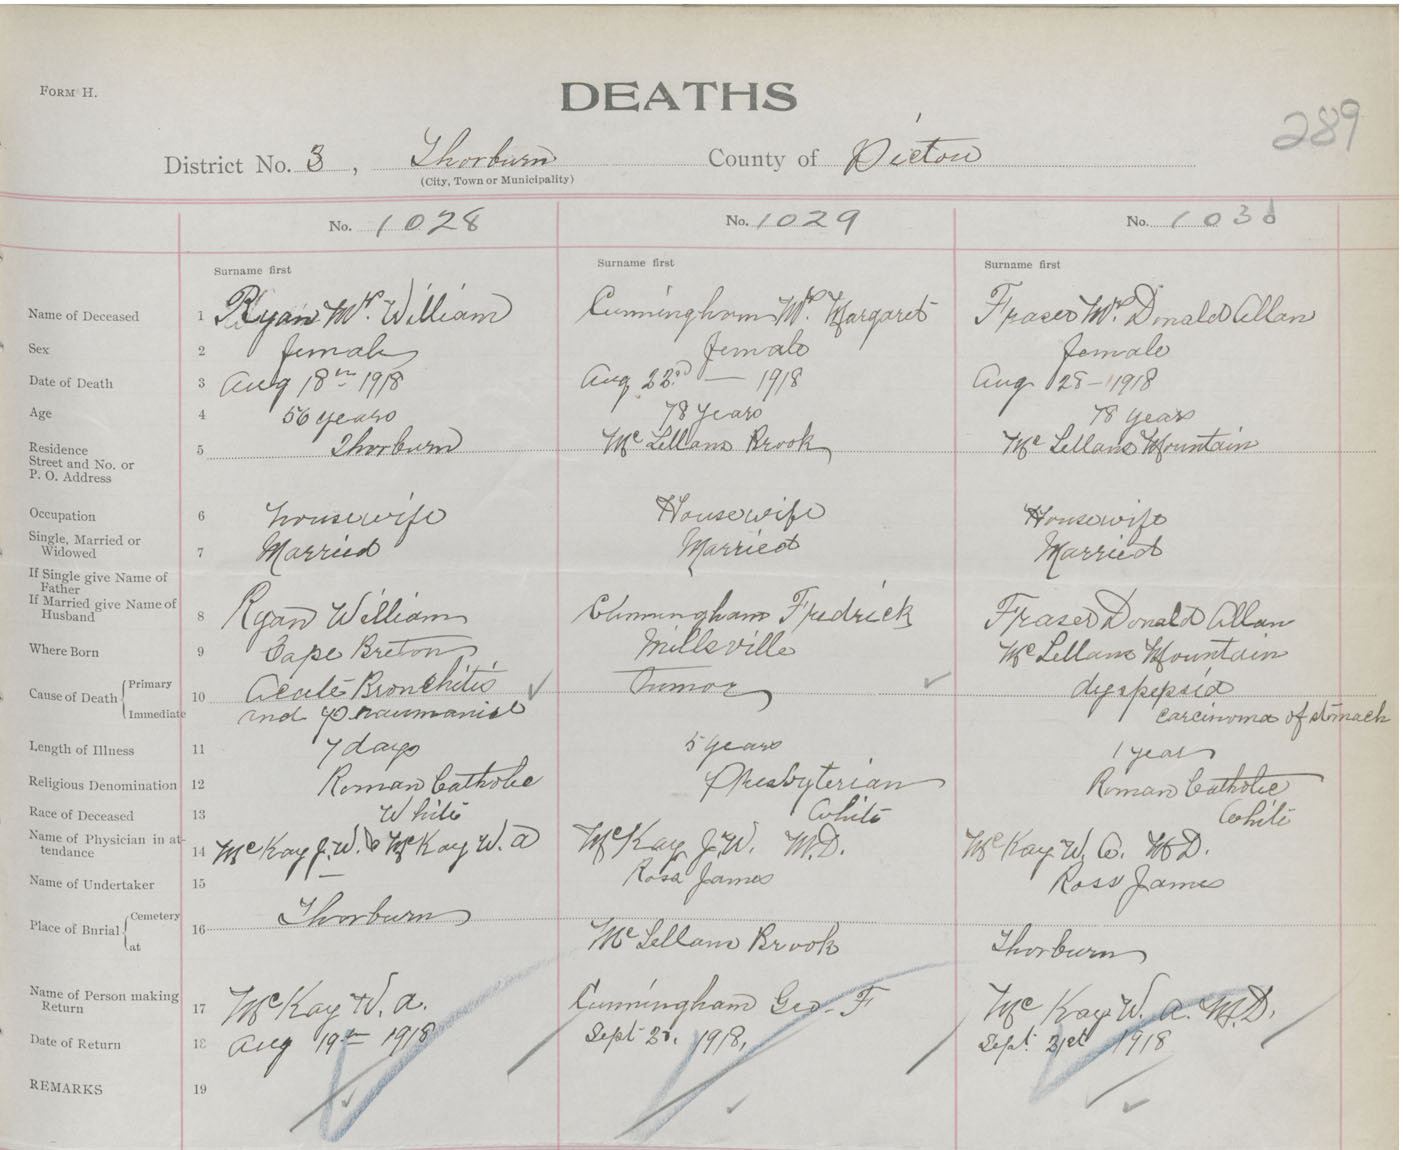 FORM H.
DEATHS
289
District No. 3, Thorburn County of Pictou
(City, Town or Municipality)
No. 1028 No. 1029 No. 1030
Surname first Surname first Surname first
Name of Deceased 1 Ryan Mrs. William Cunningham Mrs. Margaret Fraser Mrs. Donald Allan
Sex 2 female female female
Date of Death 3 Aug 18th 1918 Aug 22nd — 1918 Aug 28 - 1918
Age 4 56 years 78 years 78 years
Residence Street and No. or P. O. Address 5 Thorburn McLellans Brook McLellans Mountain
Occupation 6 housewife Housewife Housewife
Single, Married or Widowed 7 Married Married Married
If Single give Name of Father
If Married give Name of Husband 8 Ryan William Cunningham Fredrick Fraser Donald Allan
Where Born 9 Cape Breton Millsville McLellans Mountain
Cause of Death { Primary 10 Acute Bronchitis Tumor dyspepsia
Immediate and Pneumonia carcinoma of stomach
Length of Illness 11 7 days 5 years 1 year
Religious Denomination 12 Roman Catholic Presbyterian Roman Catholic
Race of Deceased 13 White White White
Name of Physician in attendance 14 McKay J. W. & McKay W. A McKay J. W. M.D. McKay W. A. M D.
Name of Undertaker 15 — Ross James Ross James
Place of Burial { Cemetery at 16 Thorburn McLellans Brook Thorburn
Name of Person making Return 17 McKay W. A. Cunningham Geo. F McKay W. A. M.D.
Date of Return 18 Aug 19th 1918 Sept 1918. Sept. 21st 1918
REMARKS 19